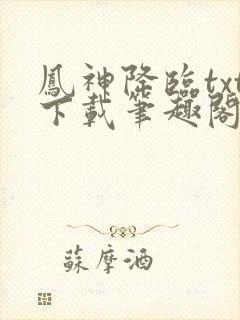 鳳神降臨txt
下載筆趣閣
蘇摩酒